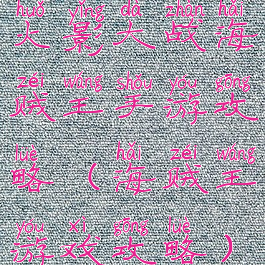 huǒ yǐng dà zhàn hǎi
火影大战海
zéi wáng shǒu yóu gōng
贼王手游攻
lüè ( hǎi zéi wáng
略(海贼王
yóu xì gōng lüè )
游戏攻略)